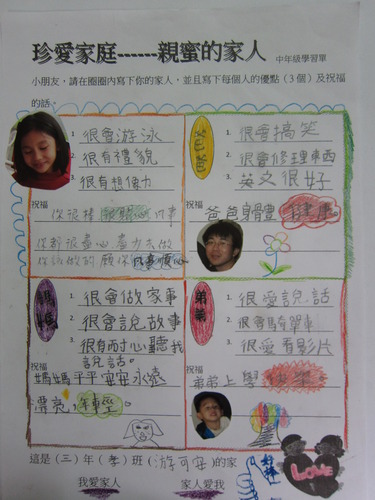 珍愛家庭------親蜜的家人 中年級學習單
小朋友，請在圈圈內寫下你的家人，並且寫下每個人的優點（3個）及祝福
的話。
1. 很會游泳
2. 很有禮貌
3. 很有想像力
祝福
你很棒
你都很盡心盡力去做
爸爸
1. 很會搞笑
2. 很會修理東西
3. 英文很好
祝福
爸爸身體
健康
媽媽
1. 很會做家事
2. 很會說故事
3. 很有耐心聽我
說話。
祝福
媽媽平平安安永遠
漂亮，年輕。
弟弟
1. 很愛說話
2. 很會騎單車
3. 很愛看影片
祝福
弟弟上學
這是（三）年（孝）班（游可安）的家
我愛家人 家人愛我
LOVE